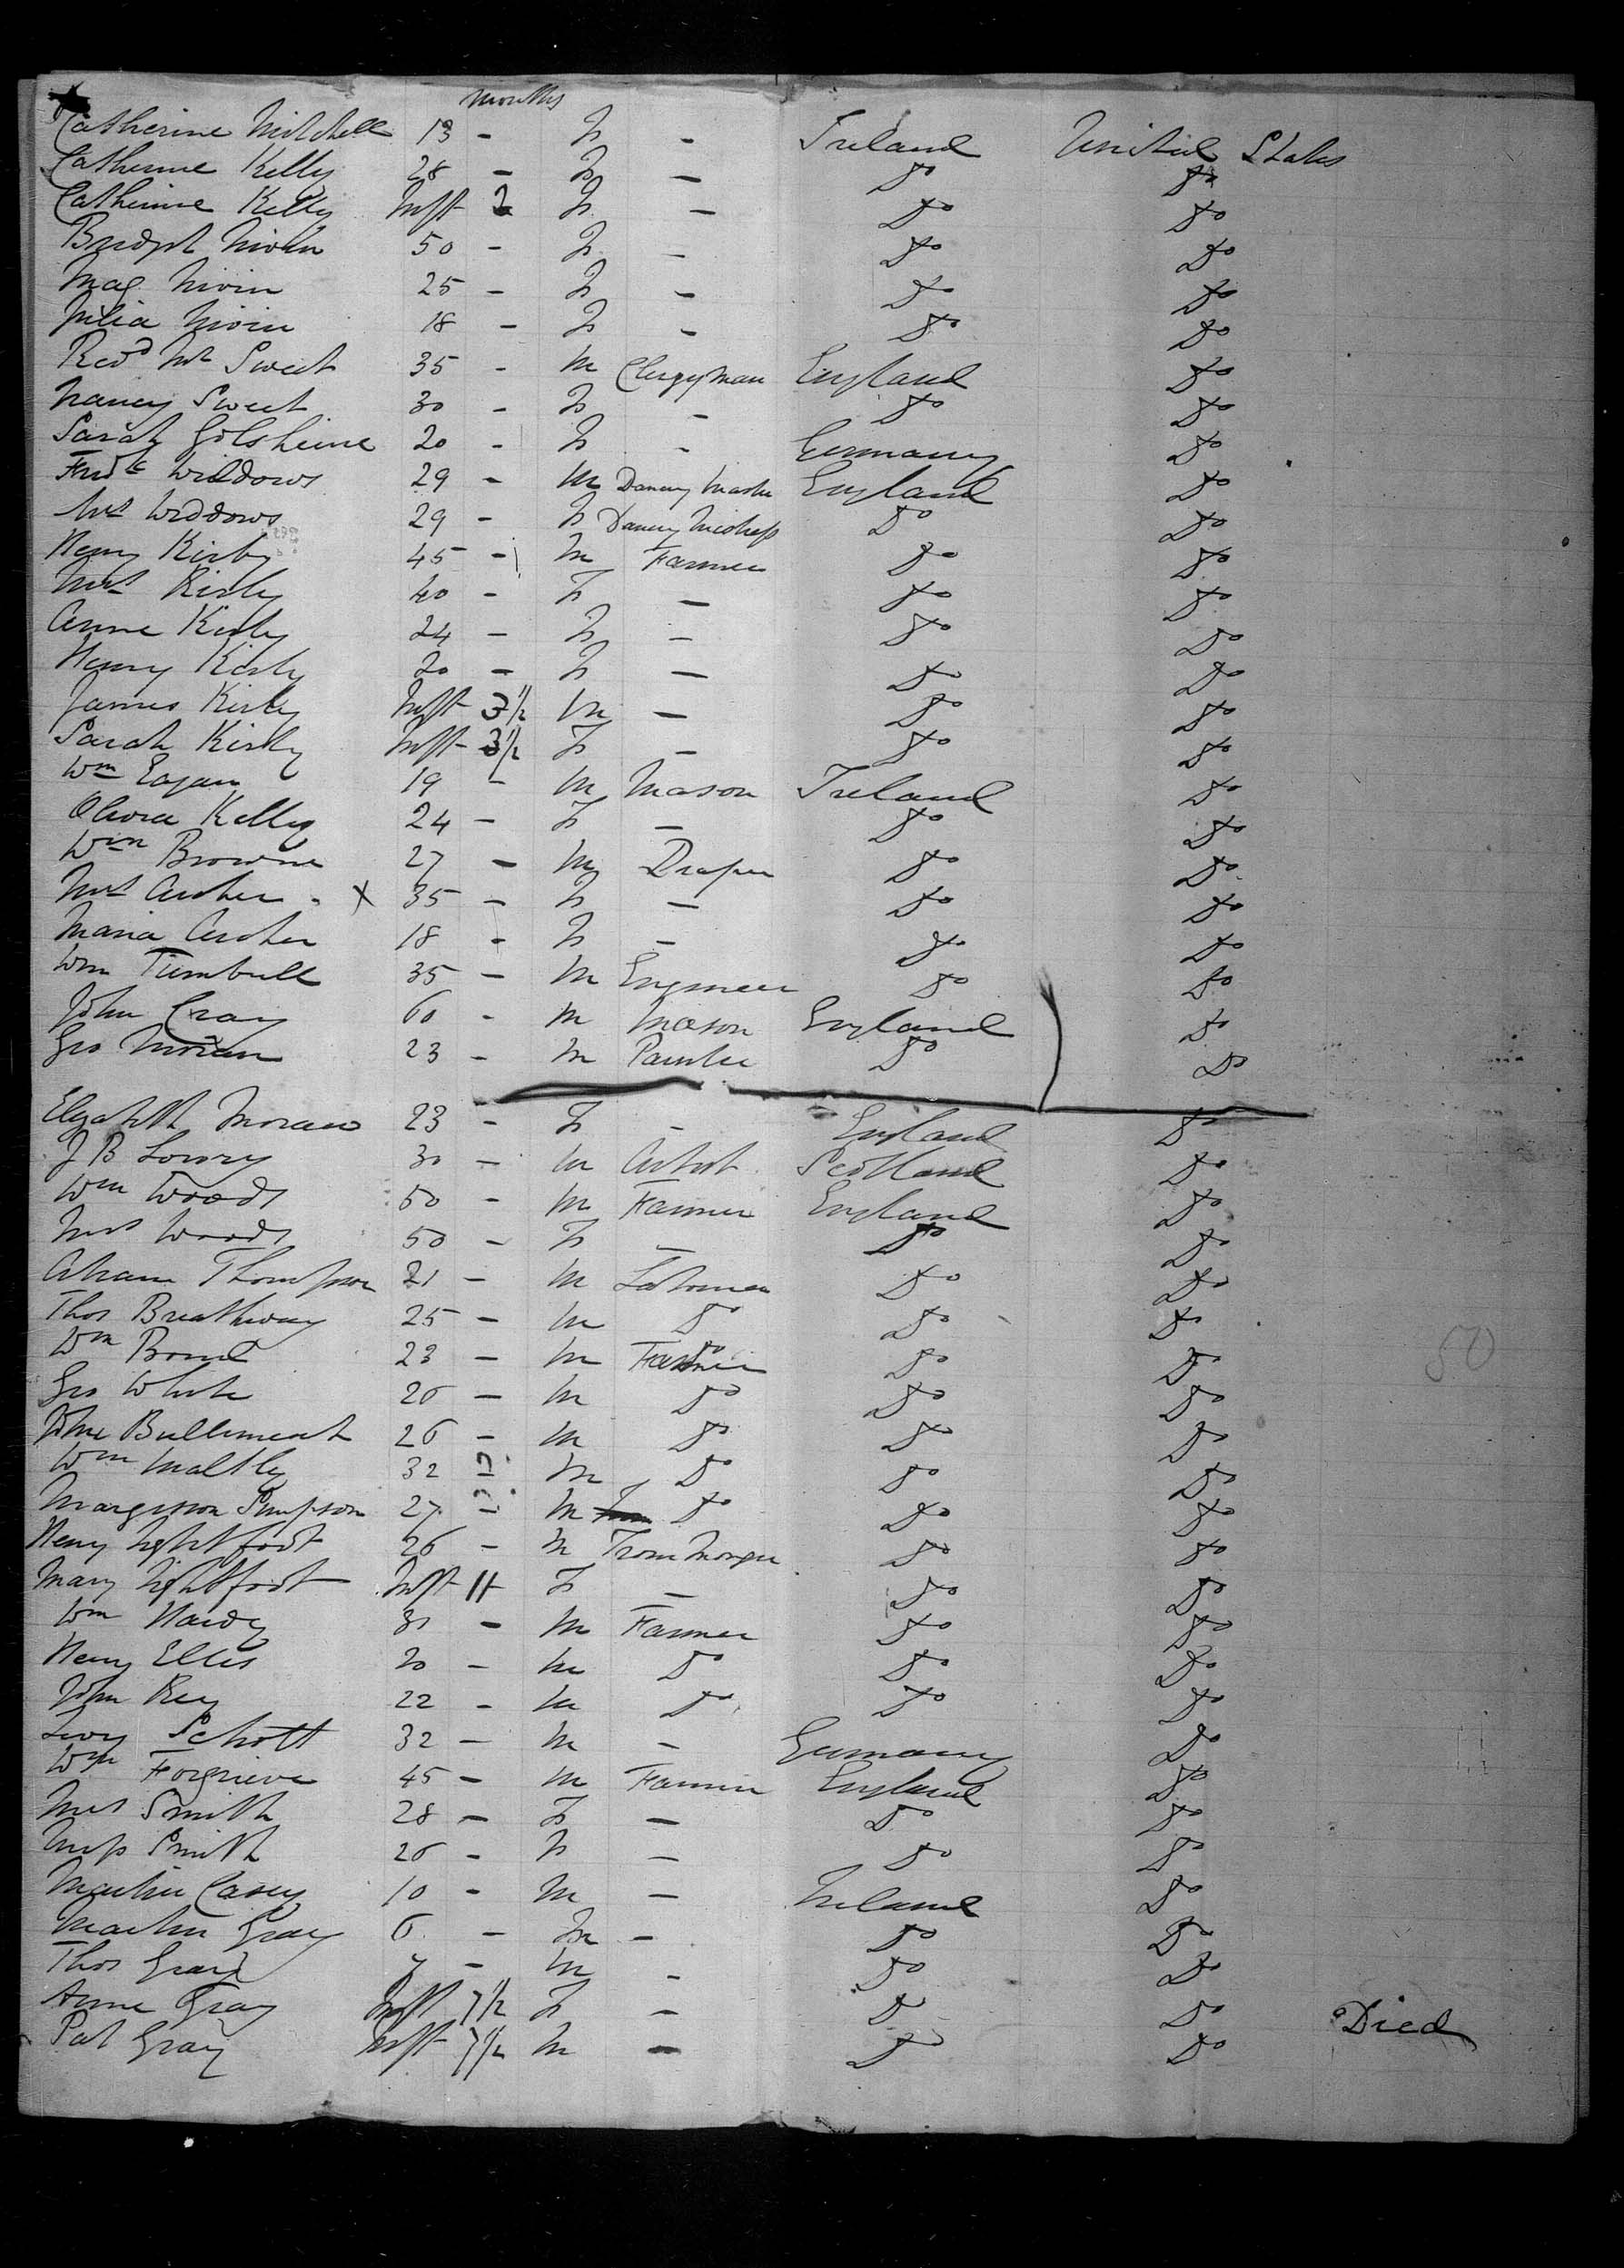 months
Catherine Mitchell 13 - F - Ireland United States
Catherine Kelly 28 - F - Do Do
Catherine Kelly Inft 2 F - Do Do
Bridgt Nivin 50 - F - Do Do
Mag Nivin 25 - F - Do Do
Julia Nivin 18 - F - Do Do
Revd Mr Sweet 35 - M Clergyman England Do
Nancy Sweet 30 - F - Do Do
Sarah 20 - F - Germany Do
Fredk Widdows 29 - M Dancing Master England Do
Mrs Widdows 29 - F Dancing Mistress Do Do
Henry Kirby 45 - M Farmer Do Do
Mrs Kirby 40 - F - Do Do
Anne Kirby 24 - F - Do Do
Henry Kirby 20 - F - Do Do
James Kirby Inft 3½ M - Do Do
Sarah Kirby Inft 3½ F - Do Do
Wm Eagan 19 - M Mason Ireland Do
Olivia Kelly 24 - F - Do Do
Wm Browne 27 - M Draper Do Do
Mrs Archer x 35 - F - Do Do
Maria Archer 18 - F - Do Do
Wm Turnbull 35 - M Engineer Do Do
John Cray 60 - M Mason England Do
Geo Moran 23 - M Painter Do Do
Elizabeth Moran 23 - F - England Do
J B Lowry 30 - M Artist Scotland Do
Wm Woods 50 - M Farmer England Do
Mrs Woods 50 - F - Do Do
Abram Thompson 21 - M Labourer Do Do
Thos Breathway 25 - M Do Do Do
Wm Bond 23 - M Farmer Do Do
Geo White 26 - M Do Do Do
John Bullement 26 - M Do Do Do
Wm Maltby 32 - M Do Do Do
Margisson Simpson 27 - M Do Do Do
Henry Lightfoot 26 - M Iron Monger Do Do
Mary Lightfoot Inft 11 F - Do Do
Wm Hardy 31 - M Farmer Do Do
Henry Ellis 20 - M Do Do Do
John Key 22 - M Do Do Do
Levy Schott 32 - M - Germany Do
Wm Forgrieve 45 - M Farmer England Do
Mrs Smith 28 - F - Do Do
Miss Smith 26 - F - Do Do
Martin Casey 10 - M - Ireland Do
Martin Gray 6 - M - Do Do
Thos Gray 7 - M - Do Do
Anne Gray Inft 7½ F - Do Do Died
Pat Gray Inft 7½ M - Do Do
50